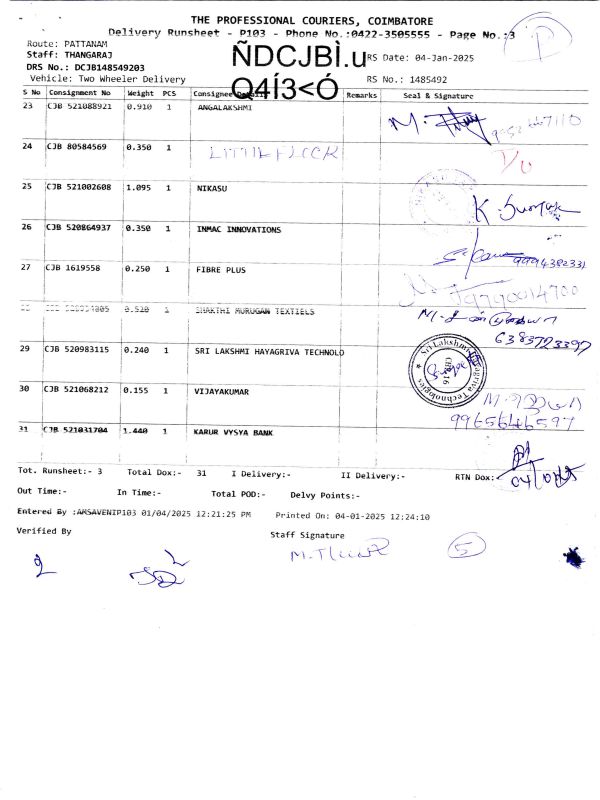 THE PROFESSIONAL COURIERS, COIMBATORE
Delivery Runsheet - P103 - Phone No.:0422-3505555 - Page No.:3
Route: PATTANAM
Staff: THANGARAJ
DRS No.: DCJB148549203
Vehicle: Two Wheeler Delivery
ÑDCJBÌ.u
Q4Í3<Ó
RS Date: 04-Jan-2025
RS No.: 1485492
S No Consignment No Weight PCS Consignee Detail Remarks Seal & Signature
23 CJB 521088921 0.910 1 ANGALAKSHMI
24 CJB 80584569 0.350 1 LITTIL FLCCK
25 CJB 521002608 1.095 1 NIKASU
K. Suman
26 CJB 520864937 0.350 1 INMAC INNOVATIONS
9994382331
27 CJB 1619558 0.250 1 FIBRE PLUS
9790014700
0.520 1 SHAKTHI MURUGAN TEXTIELS
6383723397
29 CJB 520983115 0.240 1 SRI LAKSHMI HAYAGRIVA TECHNOLO
Sri Lakshmi Hayagriva Technologies
30 CJB 521068212 0.155 1 VIJAYAKUMAR
9965646597
31 CJB 521031704 1.440 1 KARUR VYSYA BANK
Tot. Runsheet:- 3 Total Dox:- 31 I Delivery:- II Delivery:- RTN Dox:-
Out Time:- In Time:- Total POD:- Delvy Points:-
Entered By :AMSAVENIP103 01/04/2025 12:21:25 PM Printed On: 04-01-2025 12:24:10
Verified By Staff Signature
5